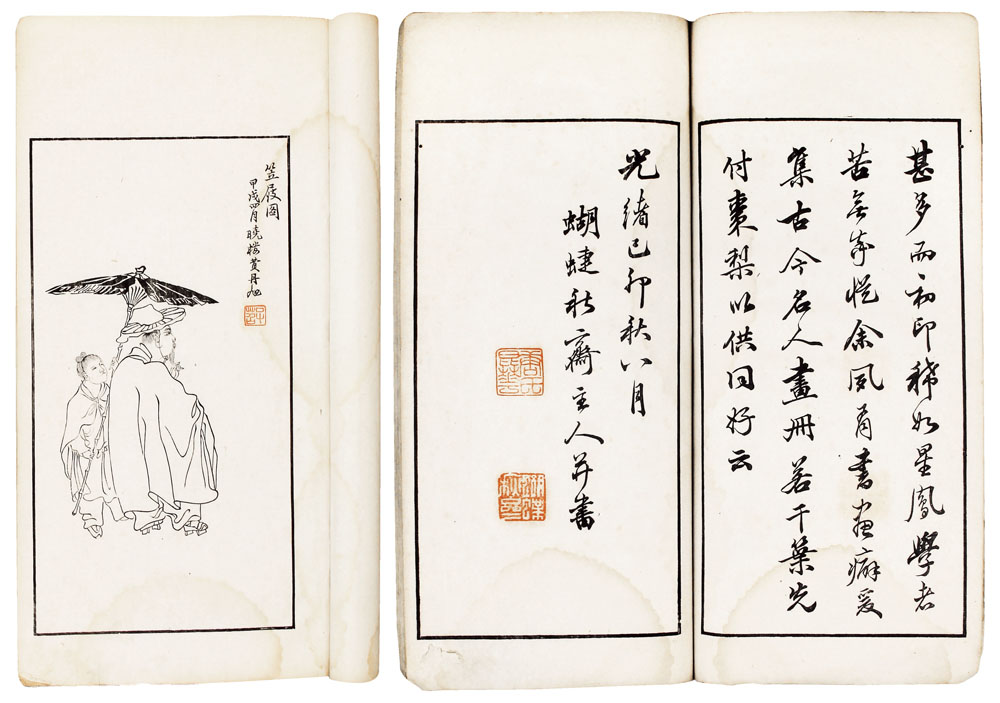 甚多而初印稀如星鳳學者
苦無余夙有書畫癖爰
集古今名人畫冊若干葉先
付棗梨以供同好云
光緒己卯秋八月
蝴蜨秋齋主人并書
笠屐圖
甲戌四月曉樓費丹旭